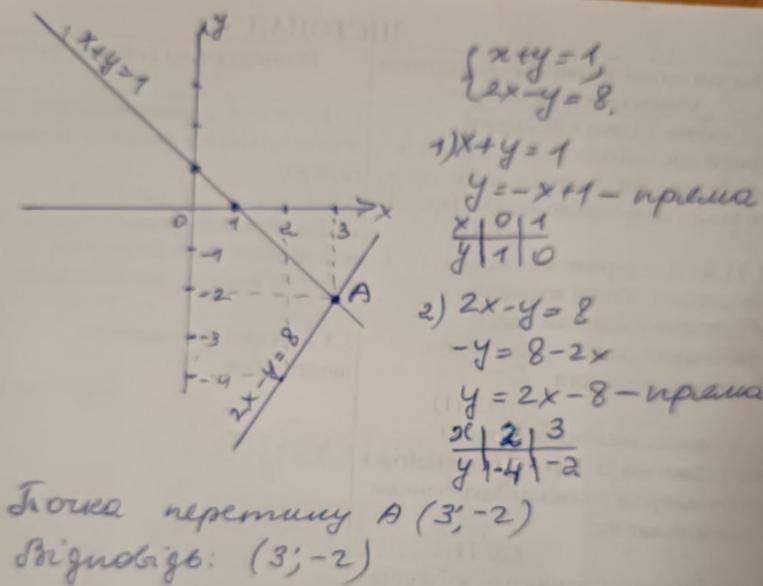 y
x+y=1
0 1 2 3 x
-1
-2 A
-3
-4
2x-y=8
{x+y=1,
2x-y=8.
1) x+y=1
y=-x+1 - пряма
x | 0 | 1
y | 1 | 0
2) 2x-y=8
-y=8-2x
y=2x-8 - пряма
x | 2 | 3
y | -4 | -2
Точка перетину A (3;-2)
Відповідь: (3;-2)